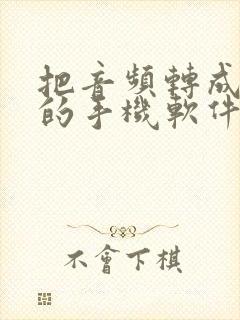 把音頻轉成
的手機軟件
不會下棋